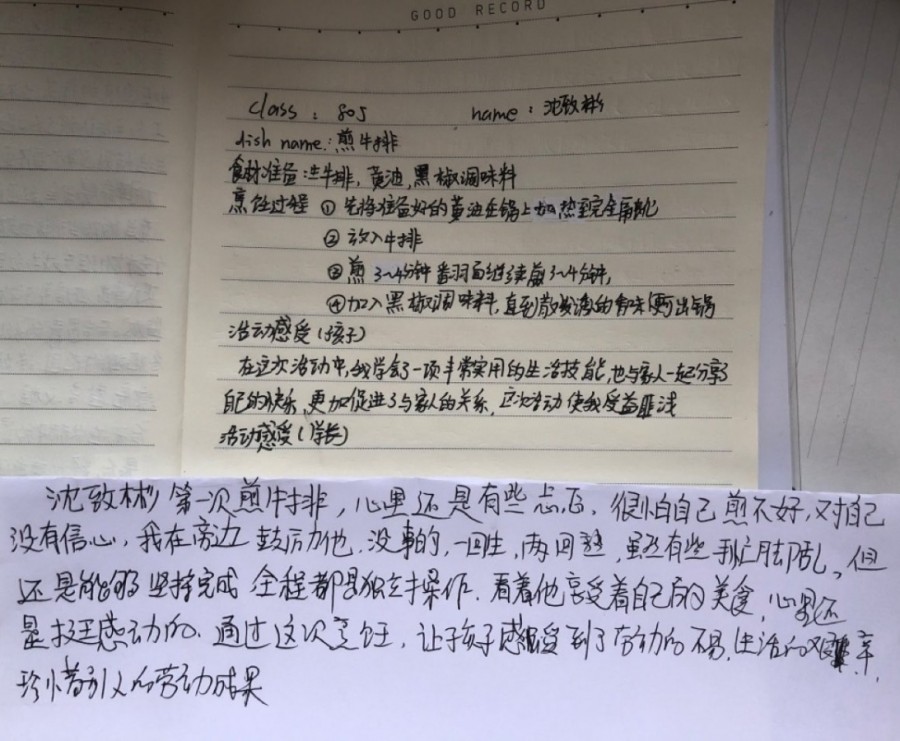 GOOD RECORD
class : 805 name : 沈致彬
dish name: 煎牛排
食材准备:生牛排, 黄油, 黑椒调味料
烹饪过程 ① 先将准备好的黄油在锅上加热至完全融化
② 放入牛排
③ 煎 3~4分钟 翻面继续煎3~4分钟,
④ 加入黑椒调味料, 直到散发浓的香味便可出锅
活动感受(孩子)
在这次活动中,我学会了一项非常实用的生活技能,也与家人一起分享了
自己的快乐, 更加促进了与家人的关系, 这次活动使我受益匪浅
活动感受(学长)
沈致彬第一次煎牛排, 心里还是有些忐忑, 很怕自己煎不好, 对自己
没有信心, 我在旁边鼓励他, 没事的, 一回生, 两回熟, 虽然有些手忙脚乱, 但
还是能够坚持完成 全程都是独立操作. 看着他享受着自己的美食, 心里还
是挺感动的. 通过这次烹饪, 让孩子感受到了劳动的不易, 生活的艰辛,
珍惜别人的劳动成果